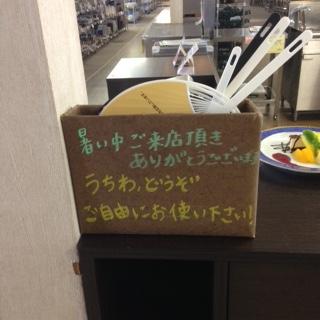 暑い中ご来店頂き
ありがとうございます
うちわ、どうぞ
ご自由にお使い下さい!